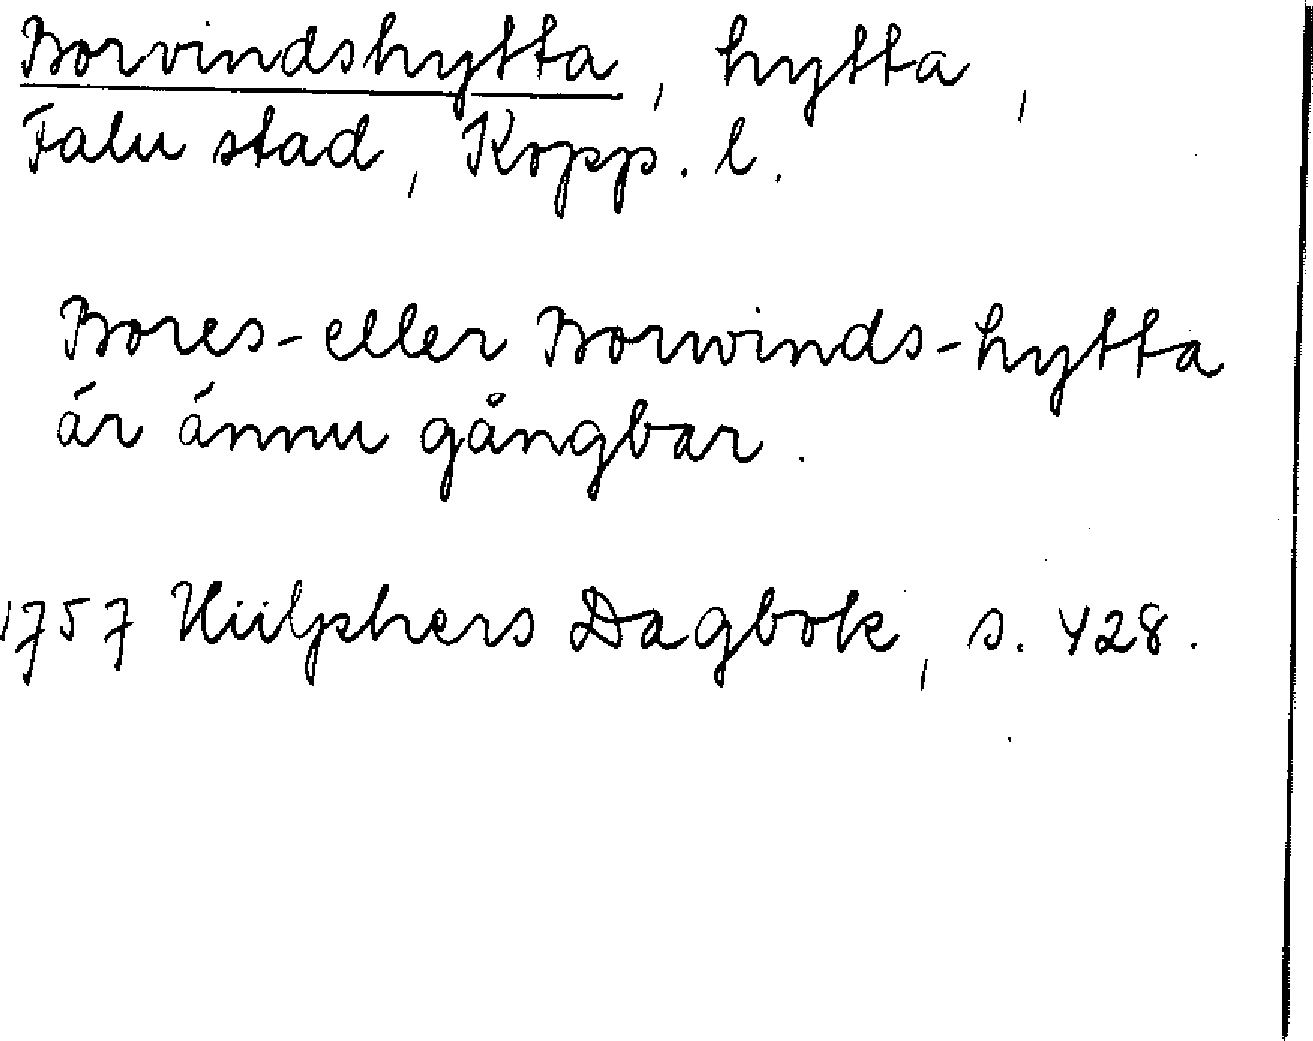 Borvindshytta, hytta,
Falu stad, Kopp. l.
Bores- eller Borwinds-hytta
är ännu gångbar.
1757 Hülphers Dagbok, s. 428.